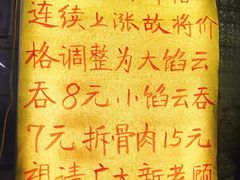 连续上涨故将价
格调整为大馅云
吞8元小馅云吞
7元拆骨肉15元
祖请广大新老顾